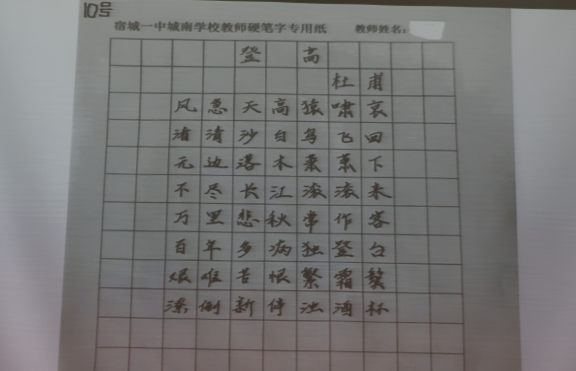 10号
宿城一中城南学校教师硬笔字专用纸 教师姓名:
登高
杜甫
风急天高猿啸哀
渚清沙白鸟飞回
无边落木萧萧下
不尽长江滚滚来
万里悲秋常作客
百年多病独登台
艰难苦恨繁霜鬓
潦倒新停浊酒杯